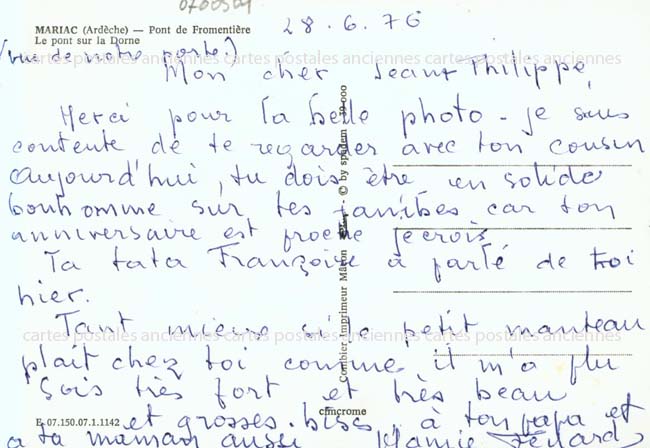 0700504
MARIAC (Ardèche) — Pont de Fromentière
Le pont sur la Dorne
28.6.76
(vue de notre porte)
cartes postales anciennes cartes postales anciennes cartes postales anciennes
Mon cher Jean Philippe,
Merci pour la belle photo - je suis
contente de te regarder avec ton cousin
aujourd'hui, tu dois être un solide
bonhomme sur tes jambes car ton
anniversaire est proche je crois.
Ta tata Françoise a parlé de toi
hier.
Tant mieux si le petit manteau
cartes postales anciennes cartes postales anciennes cartes postales anciennes
plait chez toi comme il m'a plu
Sois très fort et très beau
et grosses bises à ton papa et
à ta maman aussi Mamie
E. 07.150.07.1.1142
cimcrome
Combier Imprimeur Mâcon
© by spadem